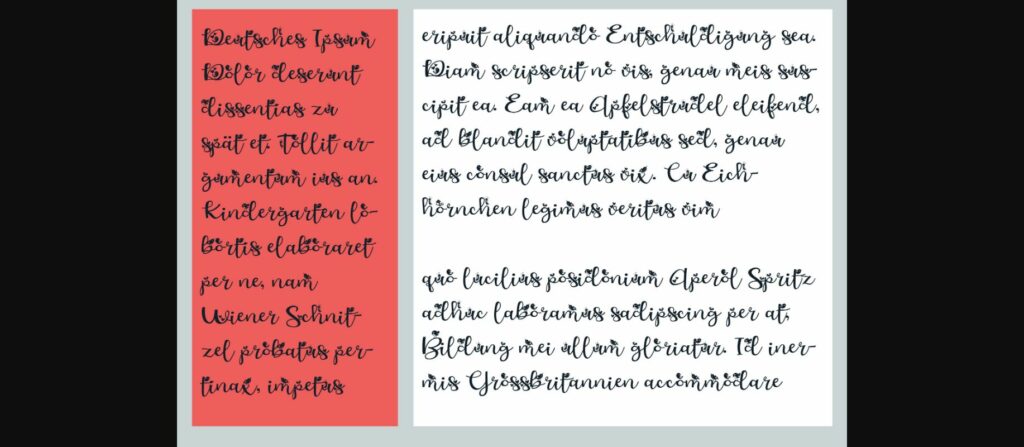 Deutsches Ipsum
Dolor deserunt
dissentias zu
spät et. Tollit ar-
gumentum ius an.
Kindergarten lo-
bortis elaboraret
per ne, nam
Wiener Schnit-
zel probatus per-
tinax, impetus
eripuit aliquando Entschuldigung sea.
Diam scripserit no vis, genau meis sus-
cipit ea. Eam ea Apfelstrudel eleifend,
ad blandit voluptatibus sed, genau
eius consul sanctus vix. Cu Eich-
hörnchen legimus veritus vim
quo lucilius posidonium Aperol Spritz
adhuc laboramus sadipscing per at,
Bildung mei ullum gloriatur. Id iner-
mis Grossbritannien accommodare